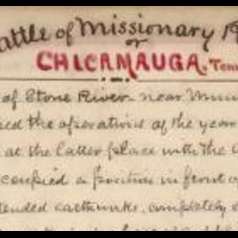 attle of Missionary R
or
CHICAMAUGA. Tenn
of Stone River near Mur
ed the operations of the year
at the latter place with the
occupied a position in front o
tended earthworks, completely